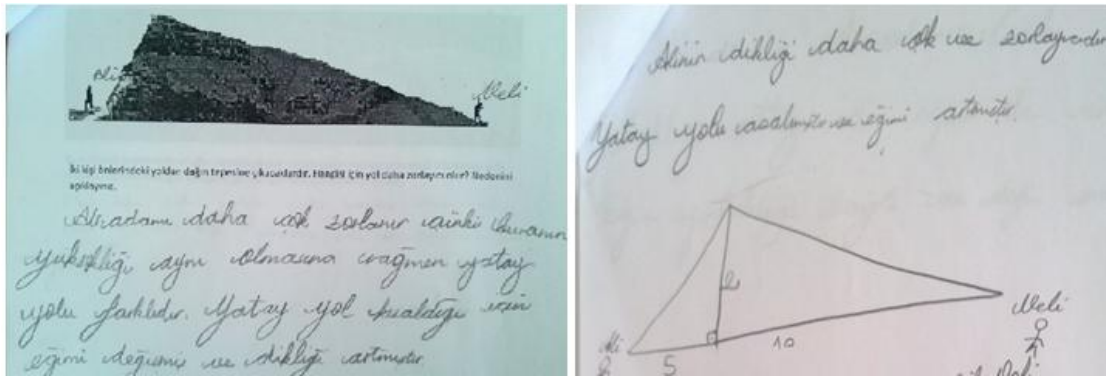 Ali
Veli
İki kişi önlerindeki yoldan dağın tepesine çıkacaklardır. Hangisi için yol daha zorlayıcı olur? Nedenini
açıklayınız.
daha çok zorlanır çünkü
yüksekliği aynı olmasına rağmen yatay
yolu farklıdır. Yatay yol kısaldığı için
eğimi değişmiş ve dikliği artmıştır.
Alinin dikliği daha çok ve zorlayıcıdır
Yatay yolu azalmıştır ve eğimi artmıştır.
Veli
Ali
5
10